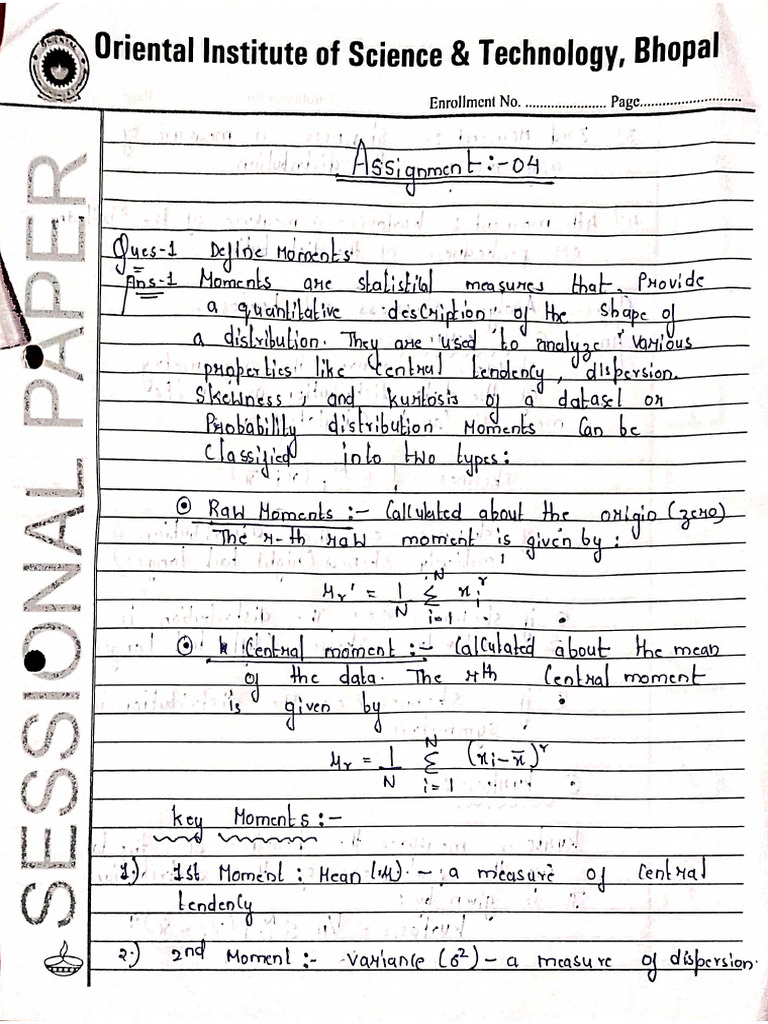 Oriental Institute of Science & Technology, Bhopal
Enrollment No. ...................... Page...........................
SESSIONAL PAPER
Assignment:-04
Ques-1 Define Moments.
Ans-1 Moments are statistital measures that, Provide
a quantitative description of the shape of
a distribution. They are used to analyze various
properties like central tendency, dispersion.
Skewness, and kurtosis of a dataset or
Probability distribution. Moments Can be
Classified into two types:
⊙ Raw Moments :- Calculated about the origin (zero)
The r-th raw moment is given by :
μr' = 1/N Σ_{i=1}^{N} xi^r
⊙ Central moment :- Calculated about the mean
of the data. The rth Central moment
is given by
μr = 1/N Σ_{i=1}^{N} (xi - x̄)^r
key Moments :-
1.) 1st Moment : Mean (μ). - a measure of Central
tendency
2.) 2nd Moment :- variance (σ²) - a measure of dispersion.